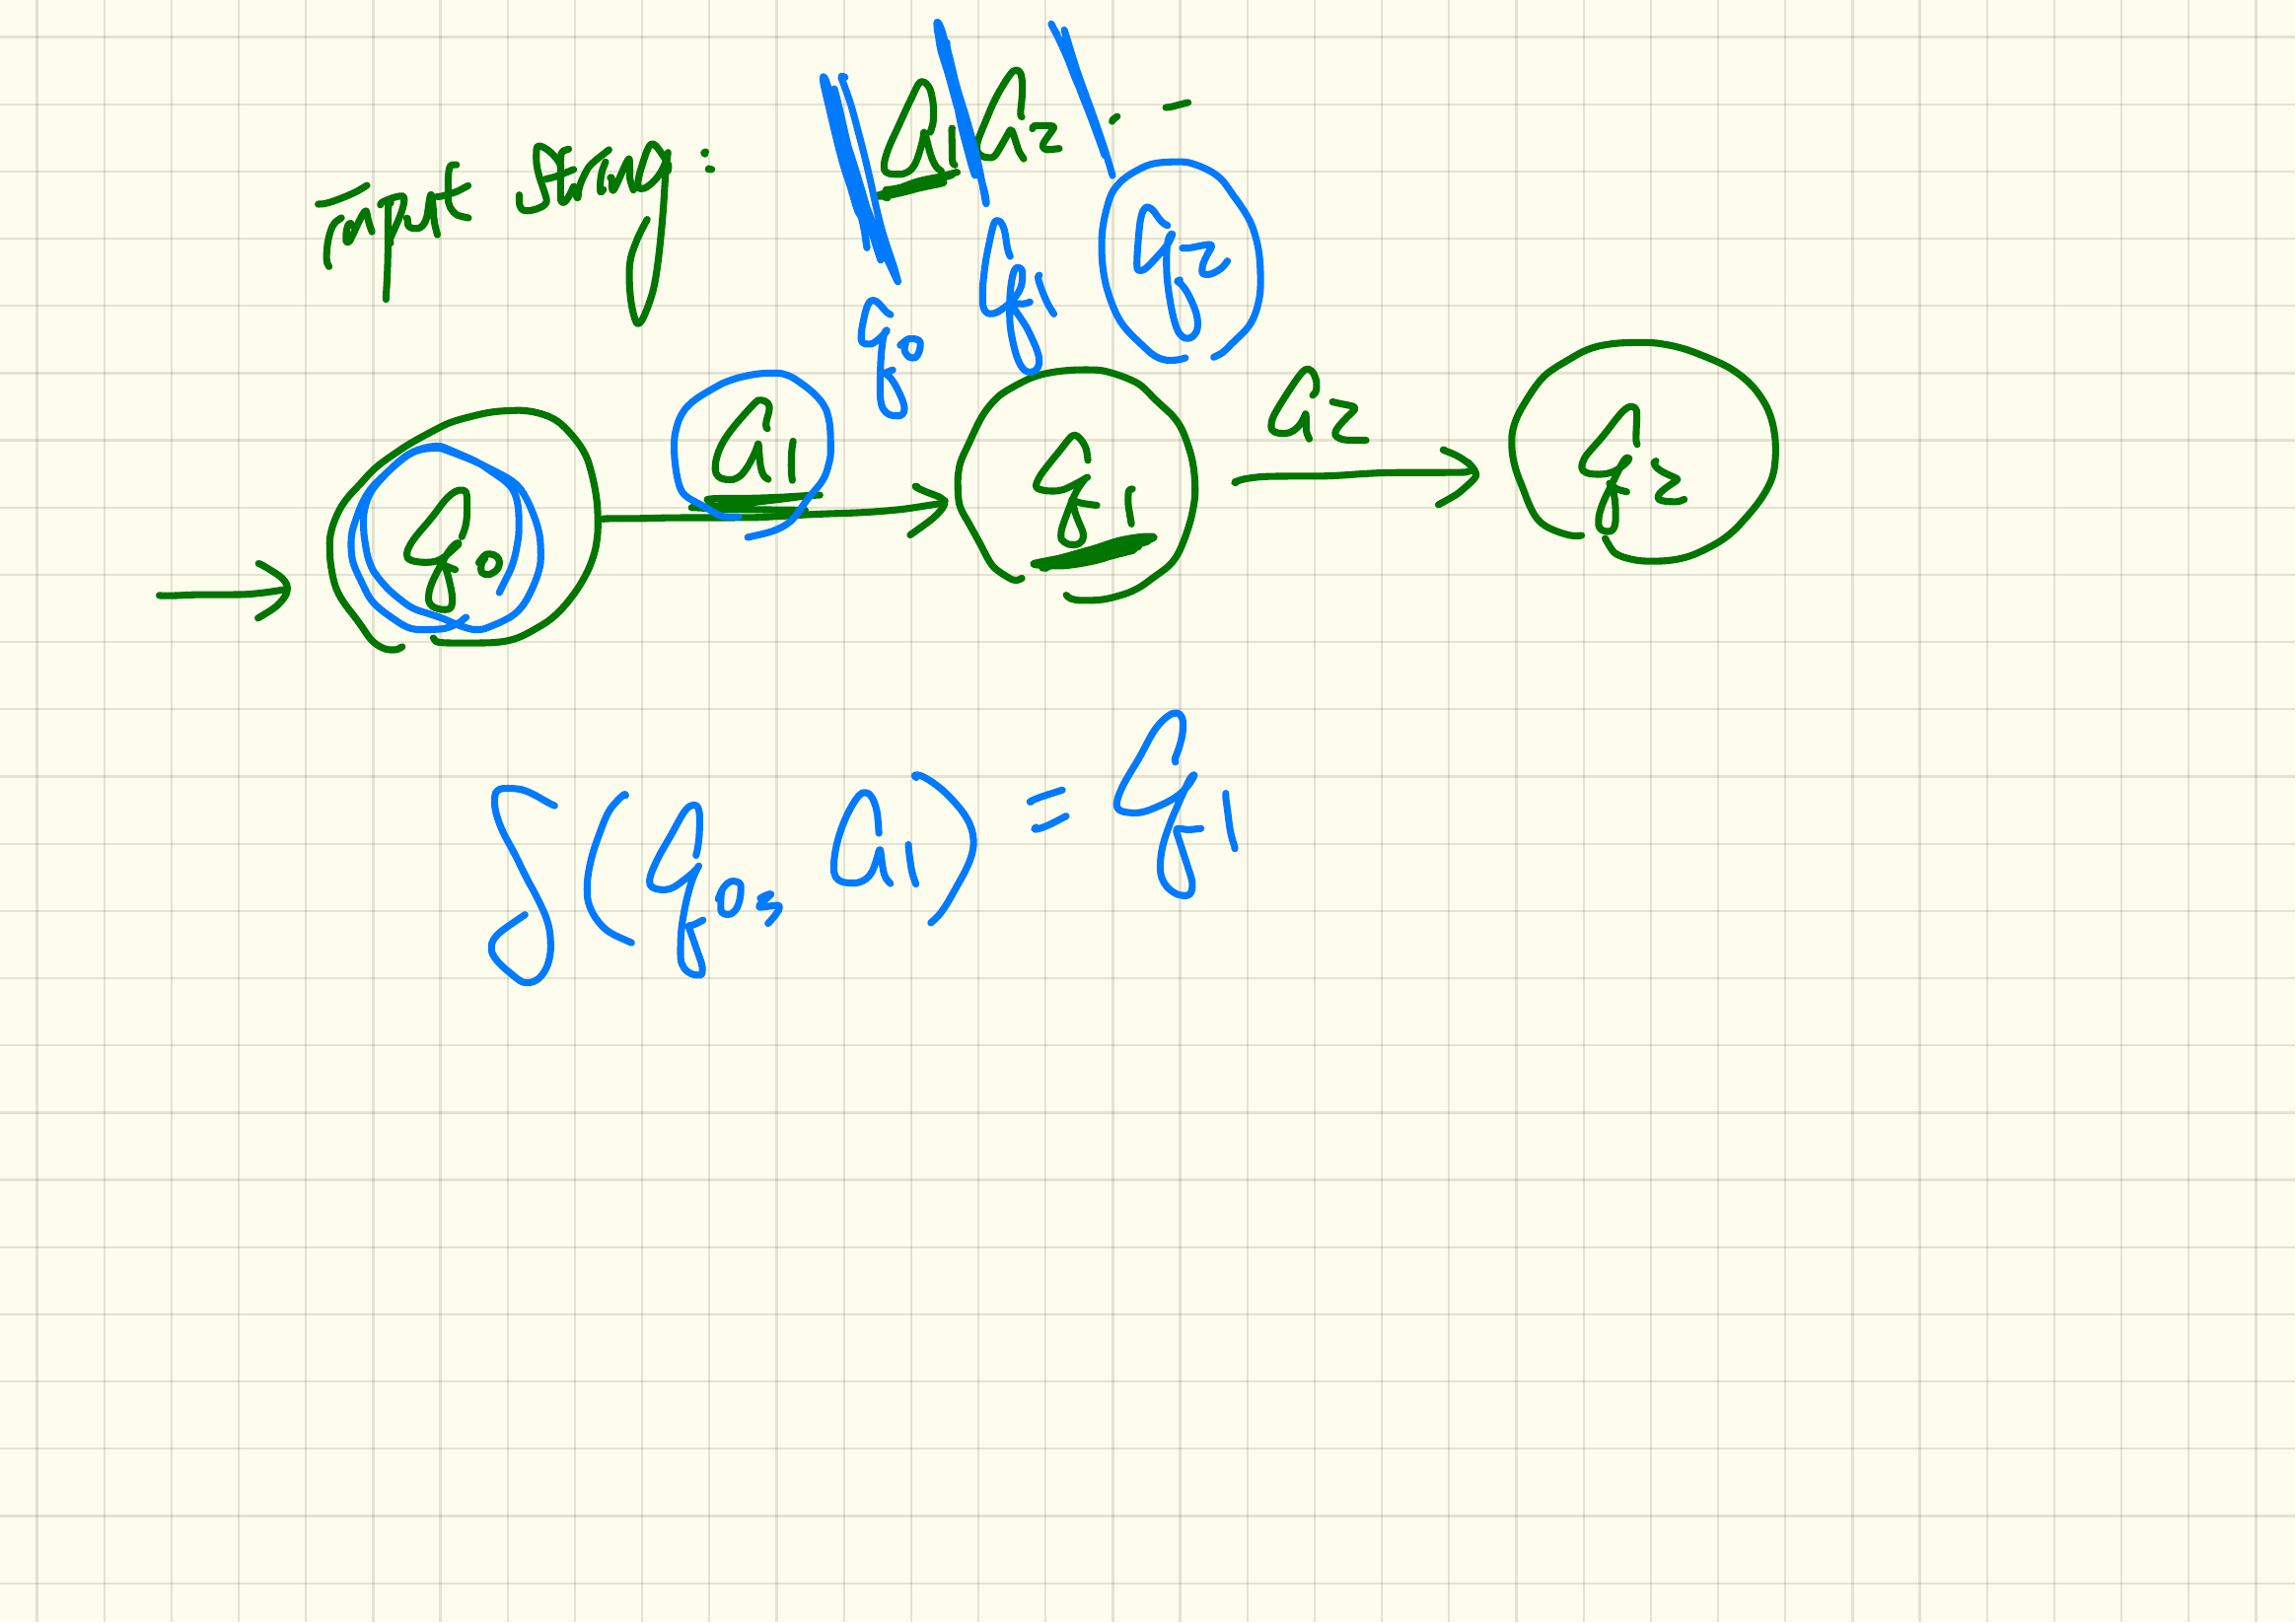 input string: a₁ a₂ . -
q₀ q₁ q₂
q₀ a₁ q₁ a₂ q₂
δ(q₀, a₁) = q₁